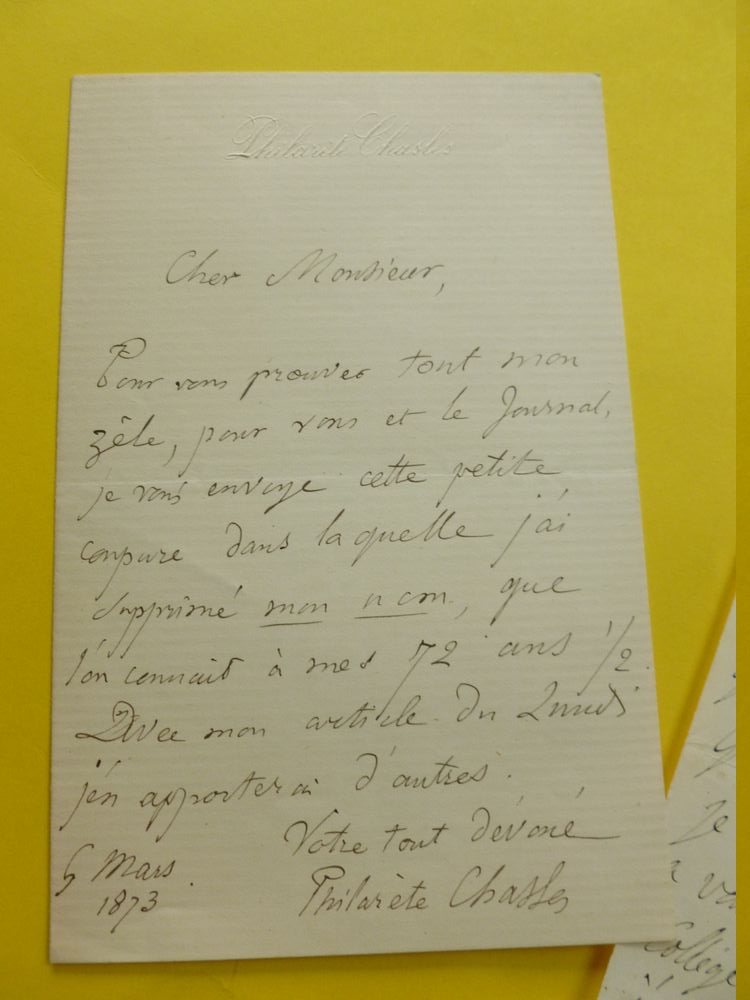 Philarète Chasles
Cher Monsieur,
Pour vous prouver tout mon
zêle, pour vous et le Journal,
je vous envoye cette petite
coupure dans laquelle j'ai
supprimé mon nom, que
l'on connait à mes 72 ans 1/2.
Avec mon article du Lundi
j'en apporterai d'autres.
Votre tout dévoué
5 Mars
1873
Philarète Chasles
Je
Collège